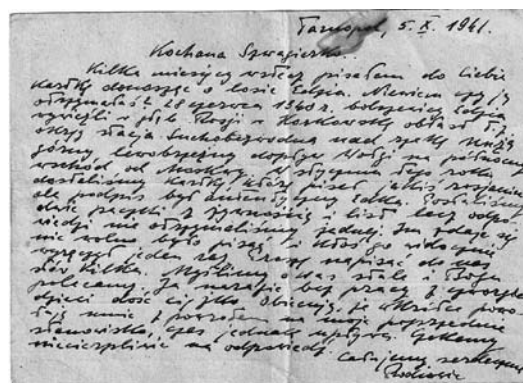 Tarnopol, 5. X. 1941.
Kochana Szwagierko.
Kilka miesięcy wstecz pisałam do Ciebie
kartkę donosząc o losie Edzia. Niewiem czy ją
otrzymałaś. 28 czerwca 1940 r. bolszewicy Edzia
wywieźli w głąb Rosji w obłast
stacja Suchobezwodna nad rzeką
górny lewobrzeżny dopływ Wołgi na północny
wschód od Moskwy. W styczniu tego roku
dostaliśmy kartkę, którą pisał jakiś rosjanin
ale podpis był autentyczny Edka. Posłaliśmy
dwie paczki z żywnością i list lecz odpo-
wiedzi nie otrzymaliśmy żadnej. Im zdaje się
nie wolno było pisać
jeden raz. Proszę napisać do nas
słów kilka. Myślimy o was stale i Bogu
polecamy. Ja narazie bez pracy z
dzieci dość ciężko. Obiecują, że wkrótce powo-
łają mnie z powrotem na moje poprzednie
stanowisko, czas jednak upływa. Czekamy
niecierpliwie na odpowiedź. Całujemy serdecznie